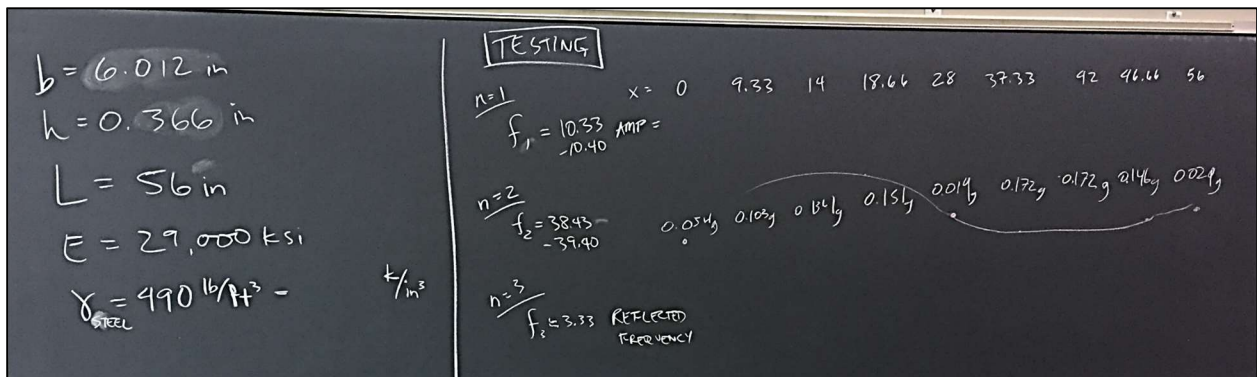 b = 6.012 in
h = 0.366 in
L = 56 in
E = 29,000 ksi
γ STEEL = 490 lb/ft³ - k/in³
TESTING
n=1
x = 0 9.33 14 18.66 28 37.33 42 46.66 56
f₁ = 10.33 AMP =
-10.40
n=2
f₂ = 38.43 -
-39.40
0.054g 0.103g 0.151g 0.019g 0.172g 0.172g 0.146g
n=3
f₃ = 3.33 REFLECTED
FREQUENCY